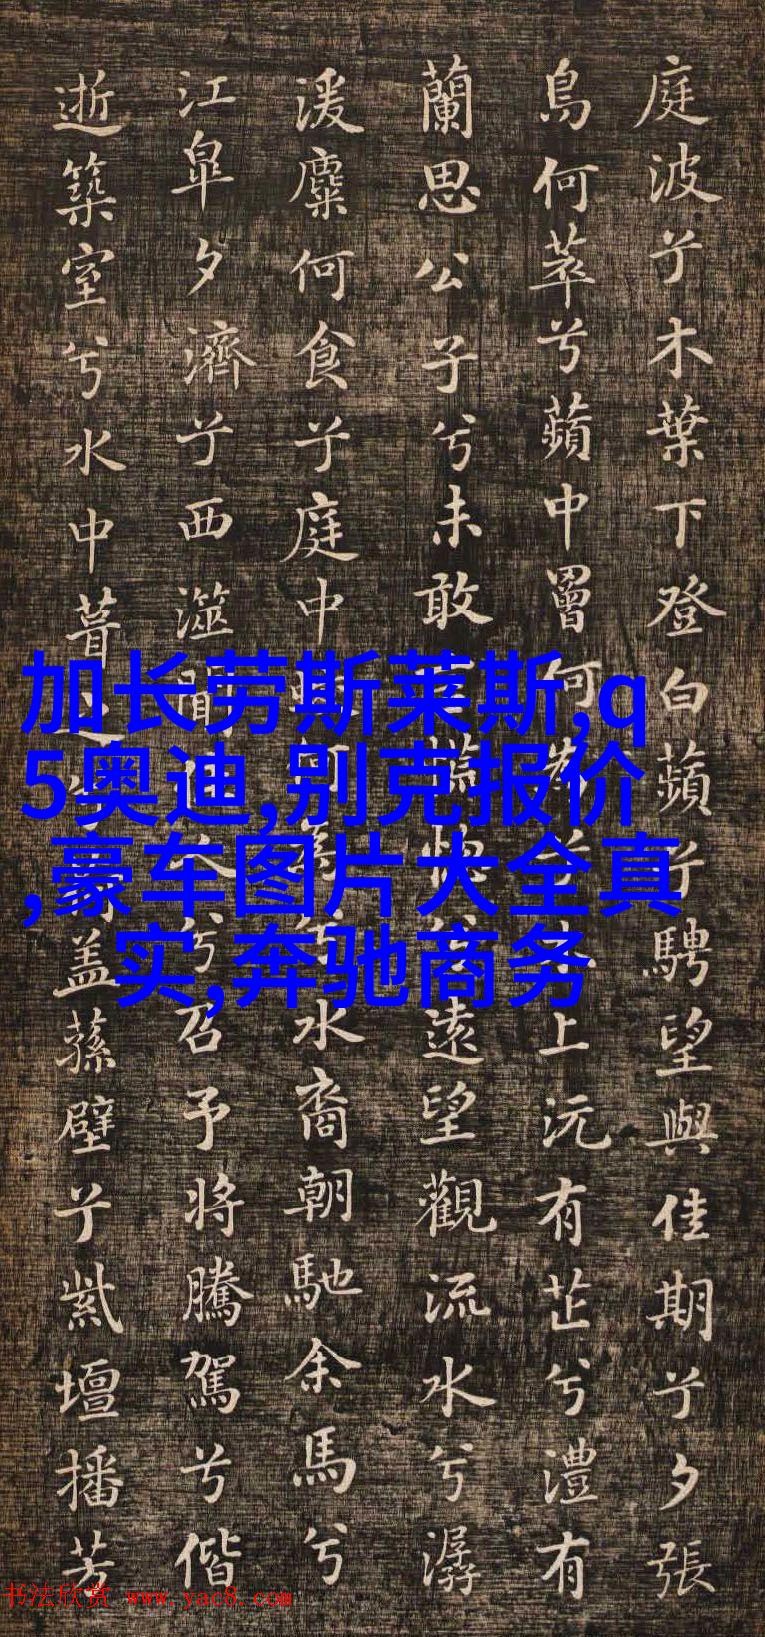 庭波兮木葉下登白蘋兮騁望與佳期兮夕張
鳥何萃兮蘋中罾何為兮上沅有芷兮澧有
蘭思公子兮未敢言慌惚兮遠望觀流水兮潺
湲麋何食兮庭中何為兮水裔朝馳余馬兮
江皋夕濟兮西澨聞人兮召予將騰駕兮偕
逝築室兮水中葺之以蓋蓀壁兮紫壇播芳
加长劳斯莱斯,q
5奥迪,别克报价
,豪车图片大全真
实,奔驰商务
书法欣赏 www.yac8.com